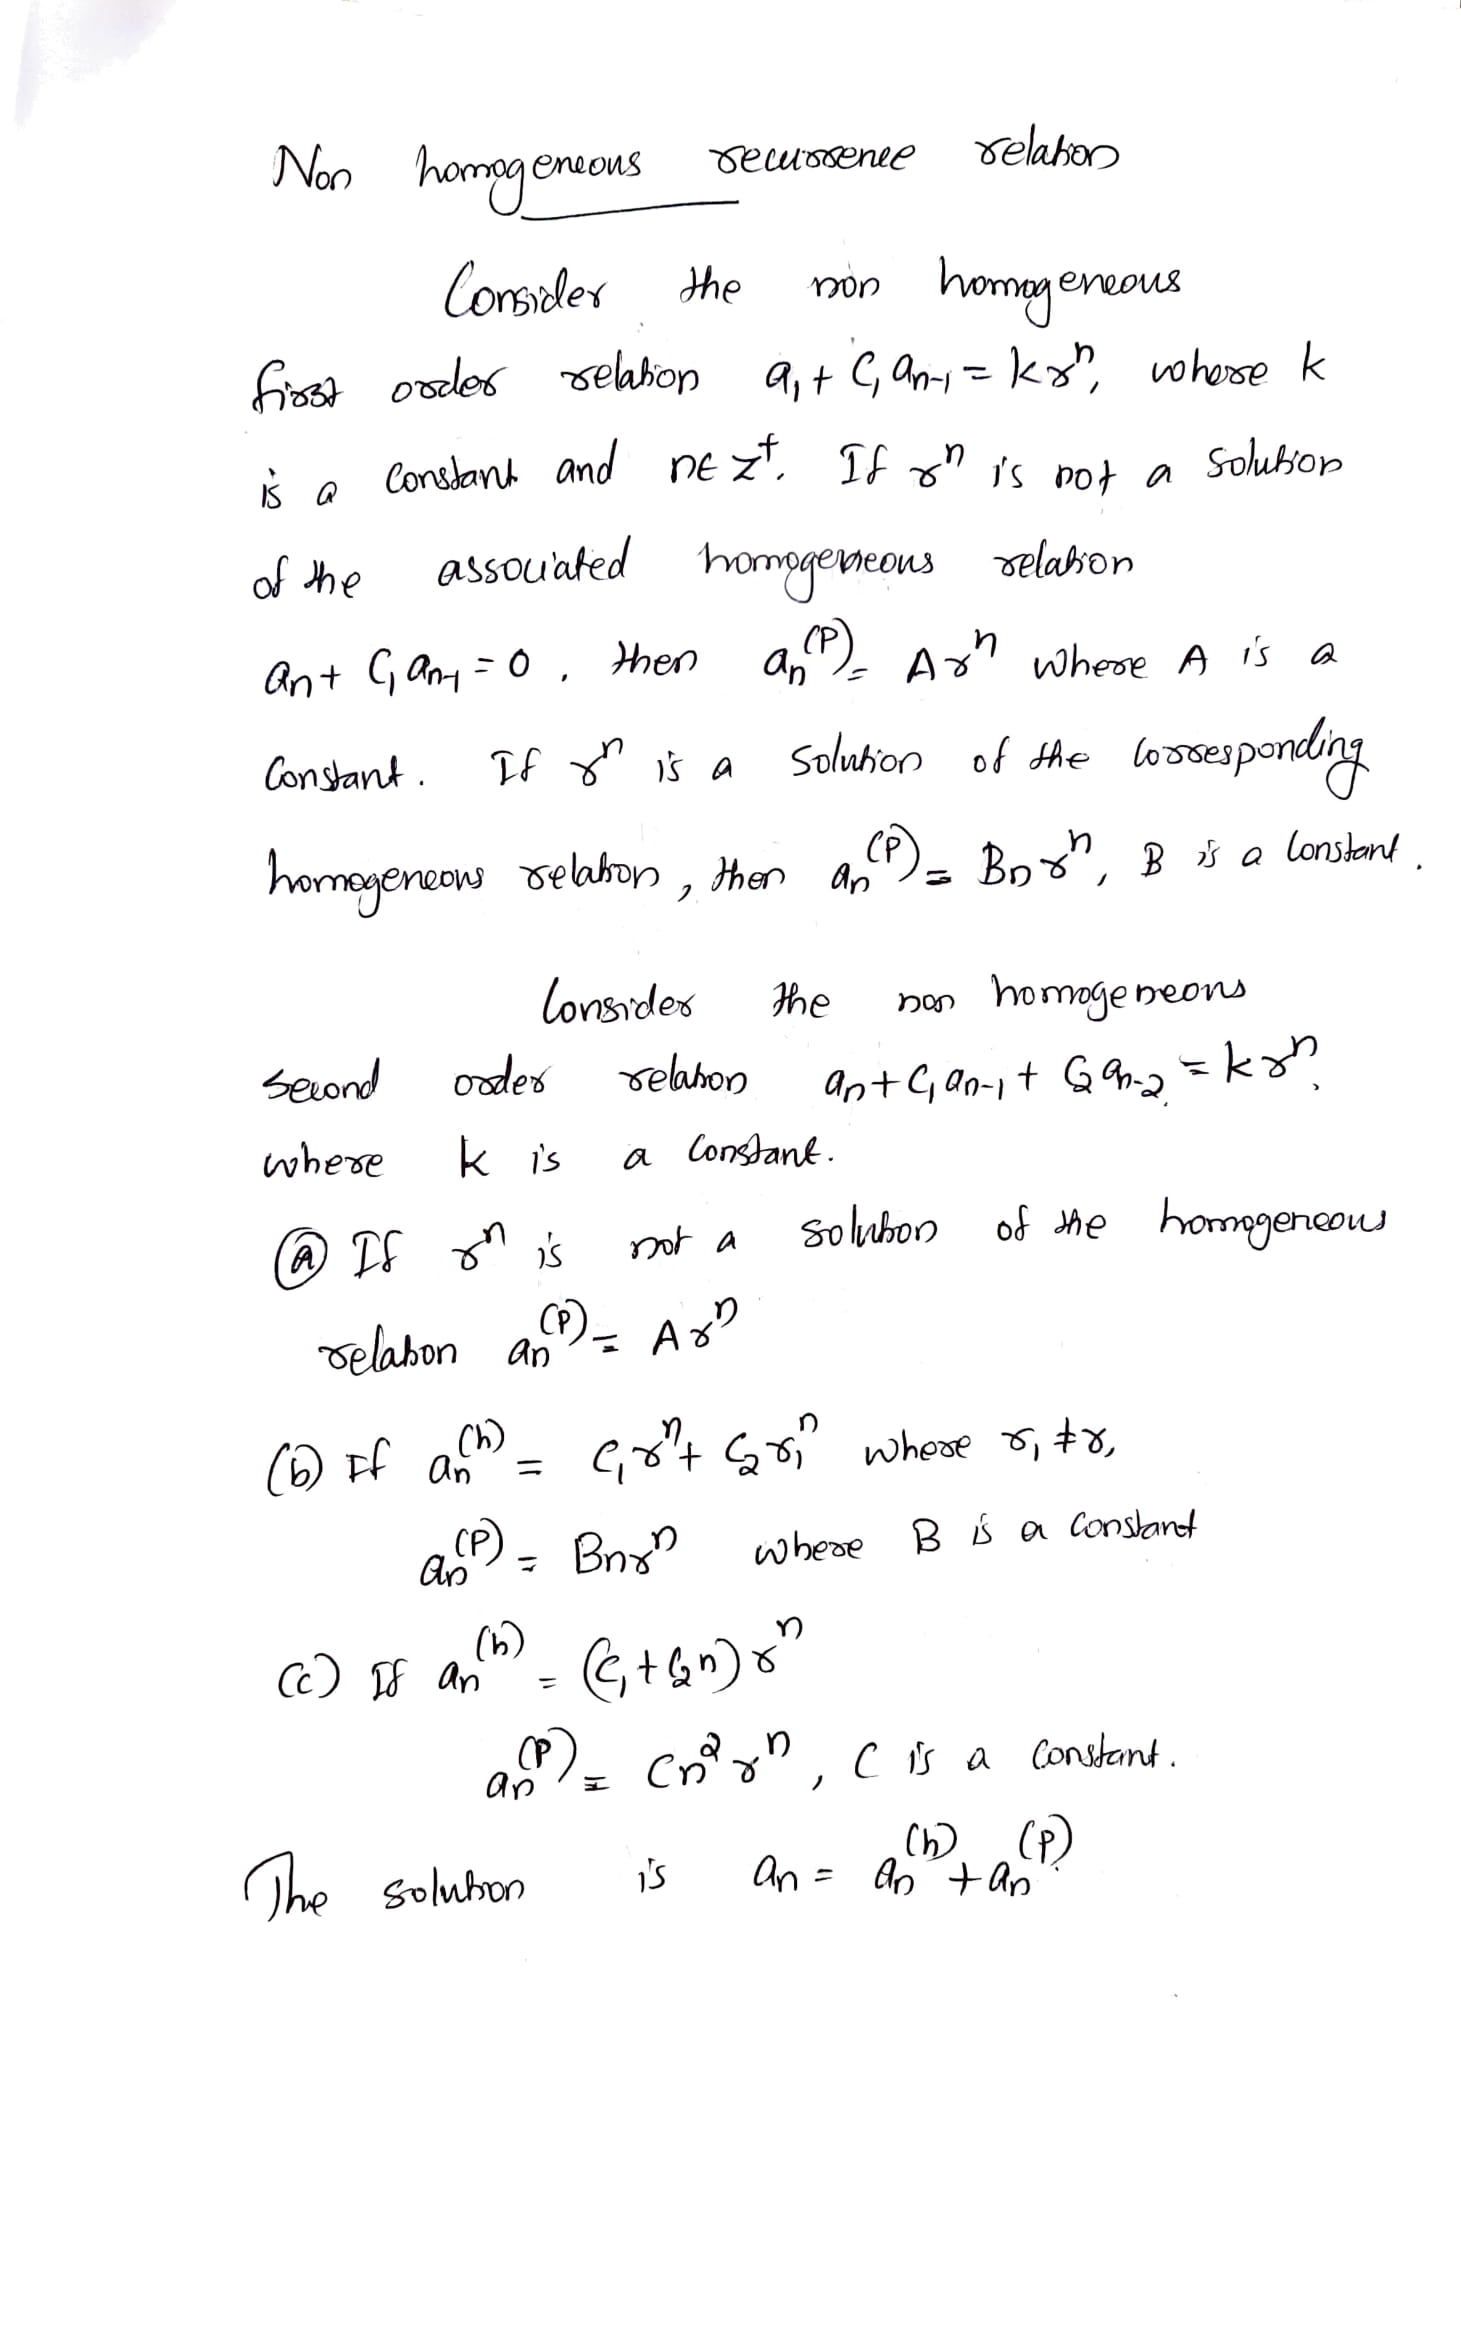 Non homogeneous recurrence relation
Consider the non homogeneous
first order relation a₁ + C₁ aₙ₋₁ = krⁿ, where k
is a constant and n∈ Z⁺. If rⁿ is not a solution
of the associated homogeneous relation
aₙ + C₁ aₙ₋₁ = 0, then aₙ⁽ᵖ⁾ = Arⁿ where A is a
constant. If rⁿ is a solution of the corresponding
homogeneous relation, then aₙ⁽ᵖ⁾ = Bnrⁿ, B is a constant.
Consider the non homogeneous
second order relation aₙ + C₁ aₙ₋₁ + C₂ aₙ₋₂ = krⁿ,
where k is a constant.
(a) If rⁿ is not a solution of the homogeneous
relation aₙ⁽ᵖ⁾ = Arⁿ
(b) If aₙ⁽ʰ⁾ = C₁rⁿ + C₂r₁ⁿ where r₁ ≠ r,
aₙ⁽ᵖ⁾ = Bnrⁿ where B is a constant
(c) If aₙ⁽ʰ⁾ = (C₁ + C₂n)rⁿ
aₙ⁽ᵖ⁾ = Cn²rⁿ, C is a constant.
The solution is aₙ = aₙ⁽ʰ⁾ + aₙ⁽ᵖ⁾.